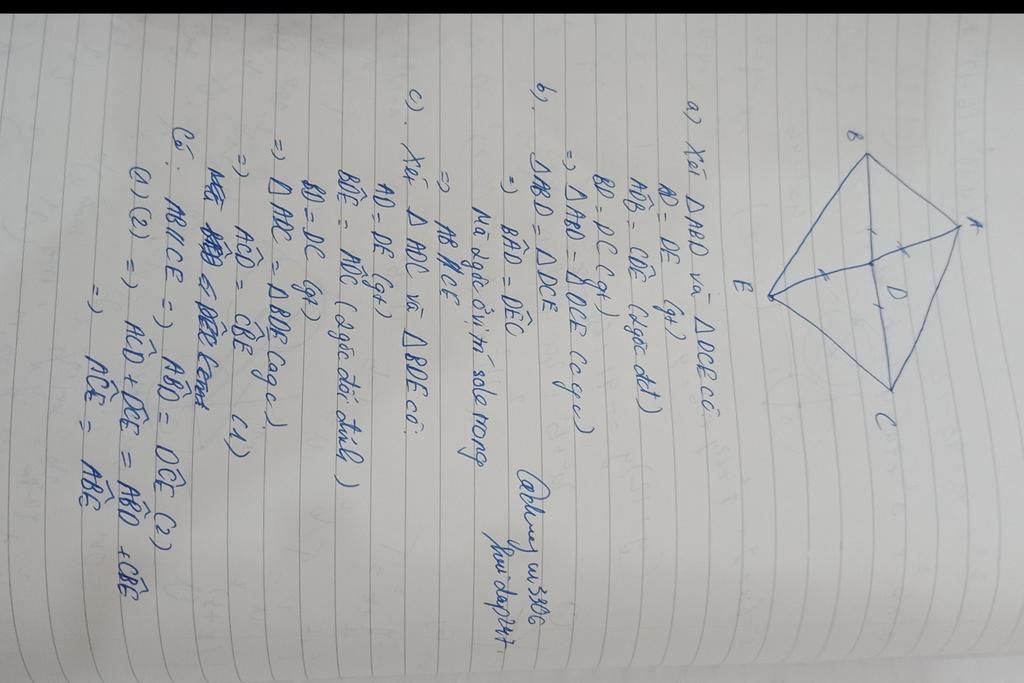 A
B
D
E
C
a) Xét ΔABD và ΔDCE có:
AD = DE (gt)
ADB̂ = CDÊ (2 góc đđ)
BD = DC (gt)
=) ΔABD = ΔDCE (cgc)
b). ΔABD = ΔDCE
=) BÂD = DÊC
Mà 2 góc ở vị trí sole trong
=) AB // CE
c). Xét ΔADC và ΔBDE có:
AD = DE (gt)
BD̂E = AD̂C (2 góc đối đỉnh)
BD = DC (gt)
=) ΔADC = ΔBDE (cgc)
=) AĈD = CB̂E (1)
Có: AB // CE =) AB̂D = DĈE (2)
(1) (2) =) AĈD + DĈE = AB̂D + CB̂E
=) AĈE = AB̂E
hoidap247